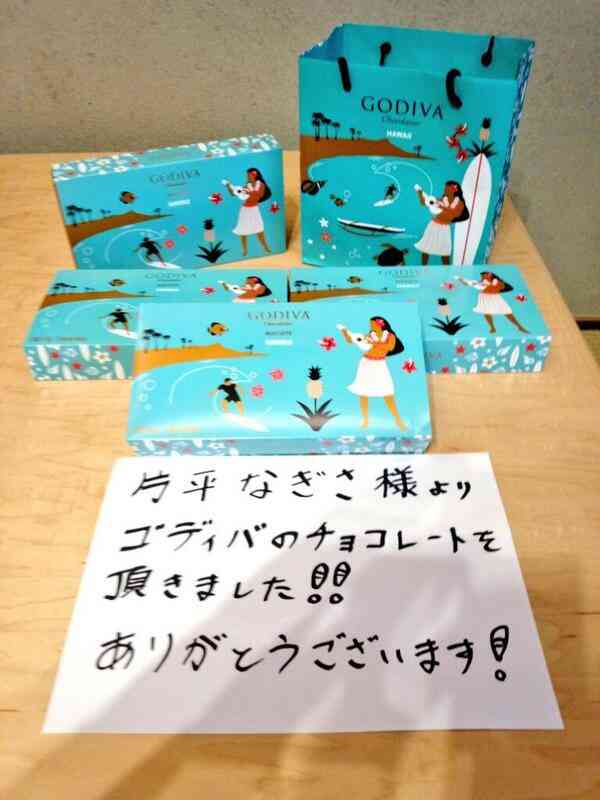 GODIVA
Chocolatier
HAWAII
GODIVA
Chocolatier
HAWAII
GODIVA
Chocolatier
HAWAII
GODIVA
Chocolatier
HAWAII
GODIVA
Chocolatier
BISCUITS
HAWAII
片平なぎさ様より
ゴディバのチョコレートを
頂きました!!
ありがとうございます!